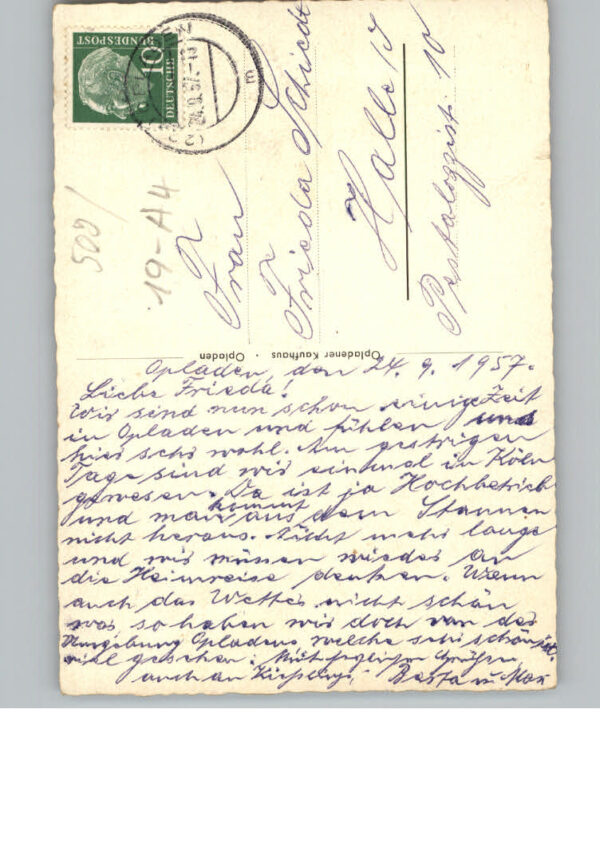 DEUTSCHE
BUNDESPOST
10
24.9.57.-18
m
500/
19-A4
Frau
Frieda Schiedt
Halle
Pestalozzistr. 10
Opladener Kaufhaus · Opladen
Opladen, den 24. 9. 1957.
Liebe Frieda!
Wir sind nun schon einige Zeit
in Opladen und fühlen uns
hier sehr wohl. Am gestrigen
Tage sind wir einmal in Köln
gewesen. Da ist ja Hochbetrieb
und man kommt aus dem Staunen
nicht heraus. Nicht mehr lange
und wir müssen wieder an
die Heimreise denken. Wenn
auch das Wetter nicht schön
war so haben wir doch von der
Umgebung Opladens welche sehr schön ist
viel gesehen. Mit Grüßen
auch an Berta u. Max